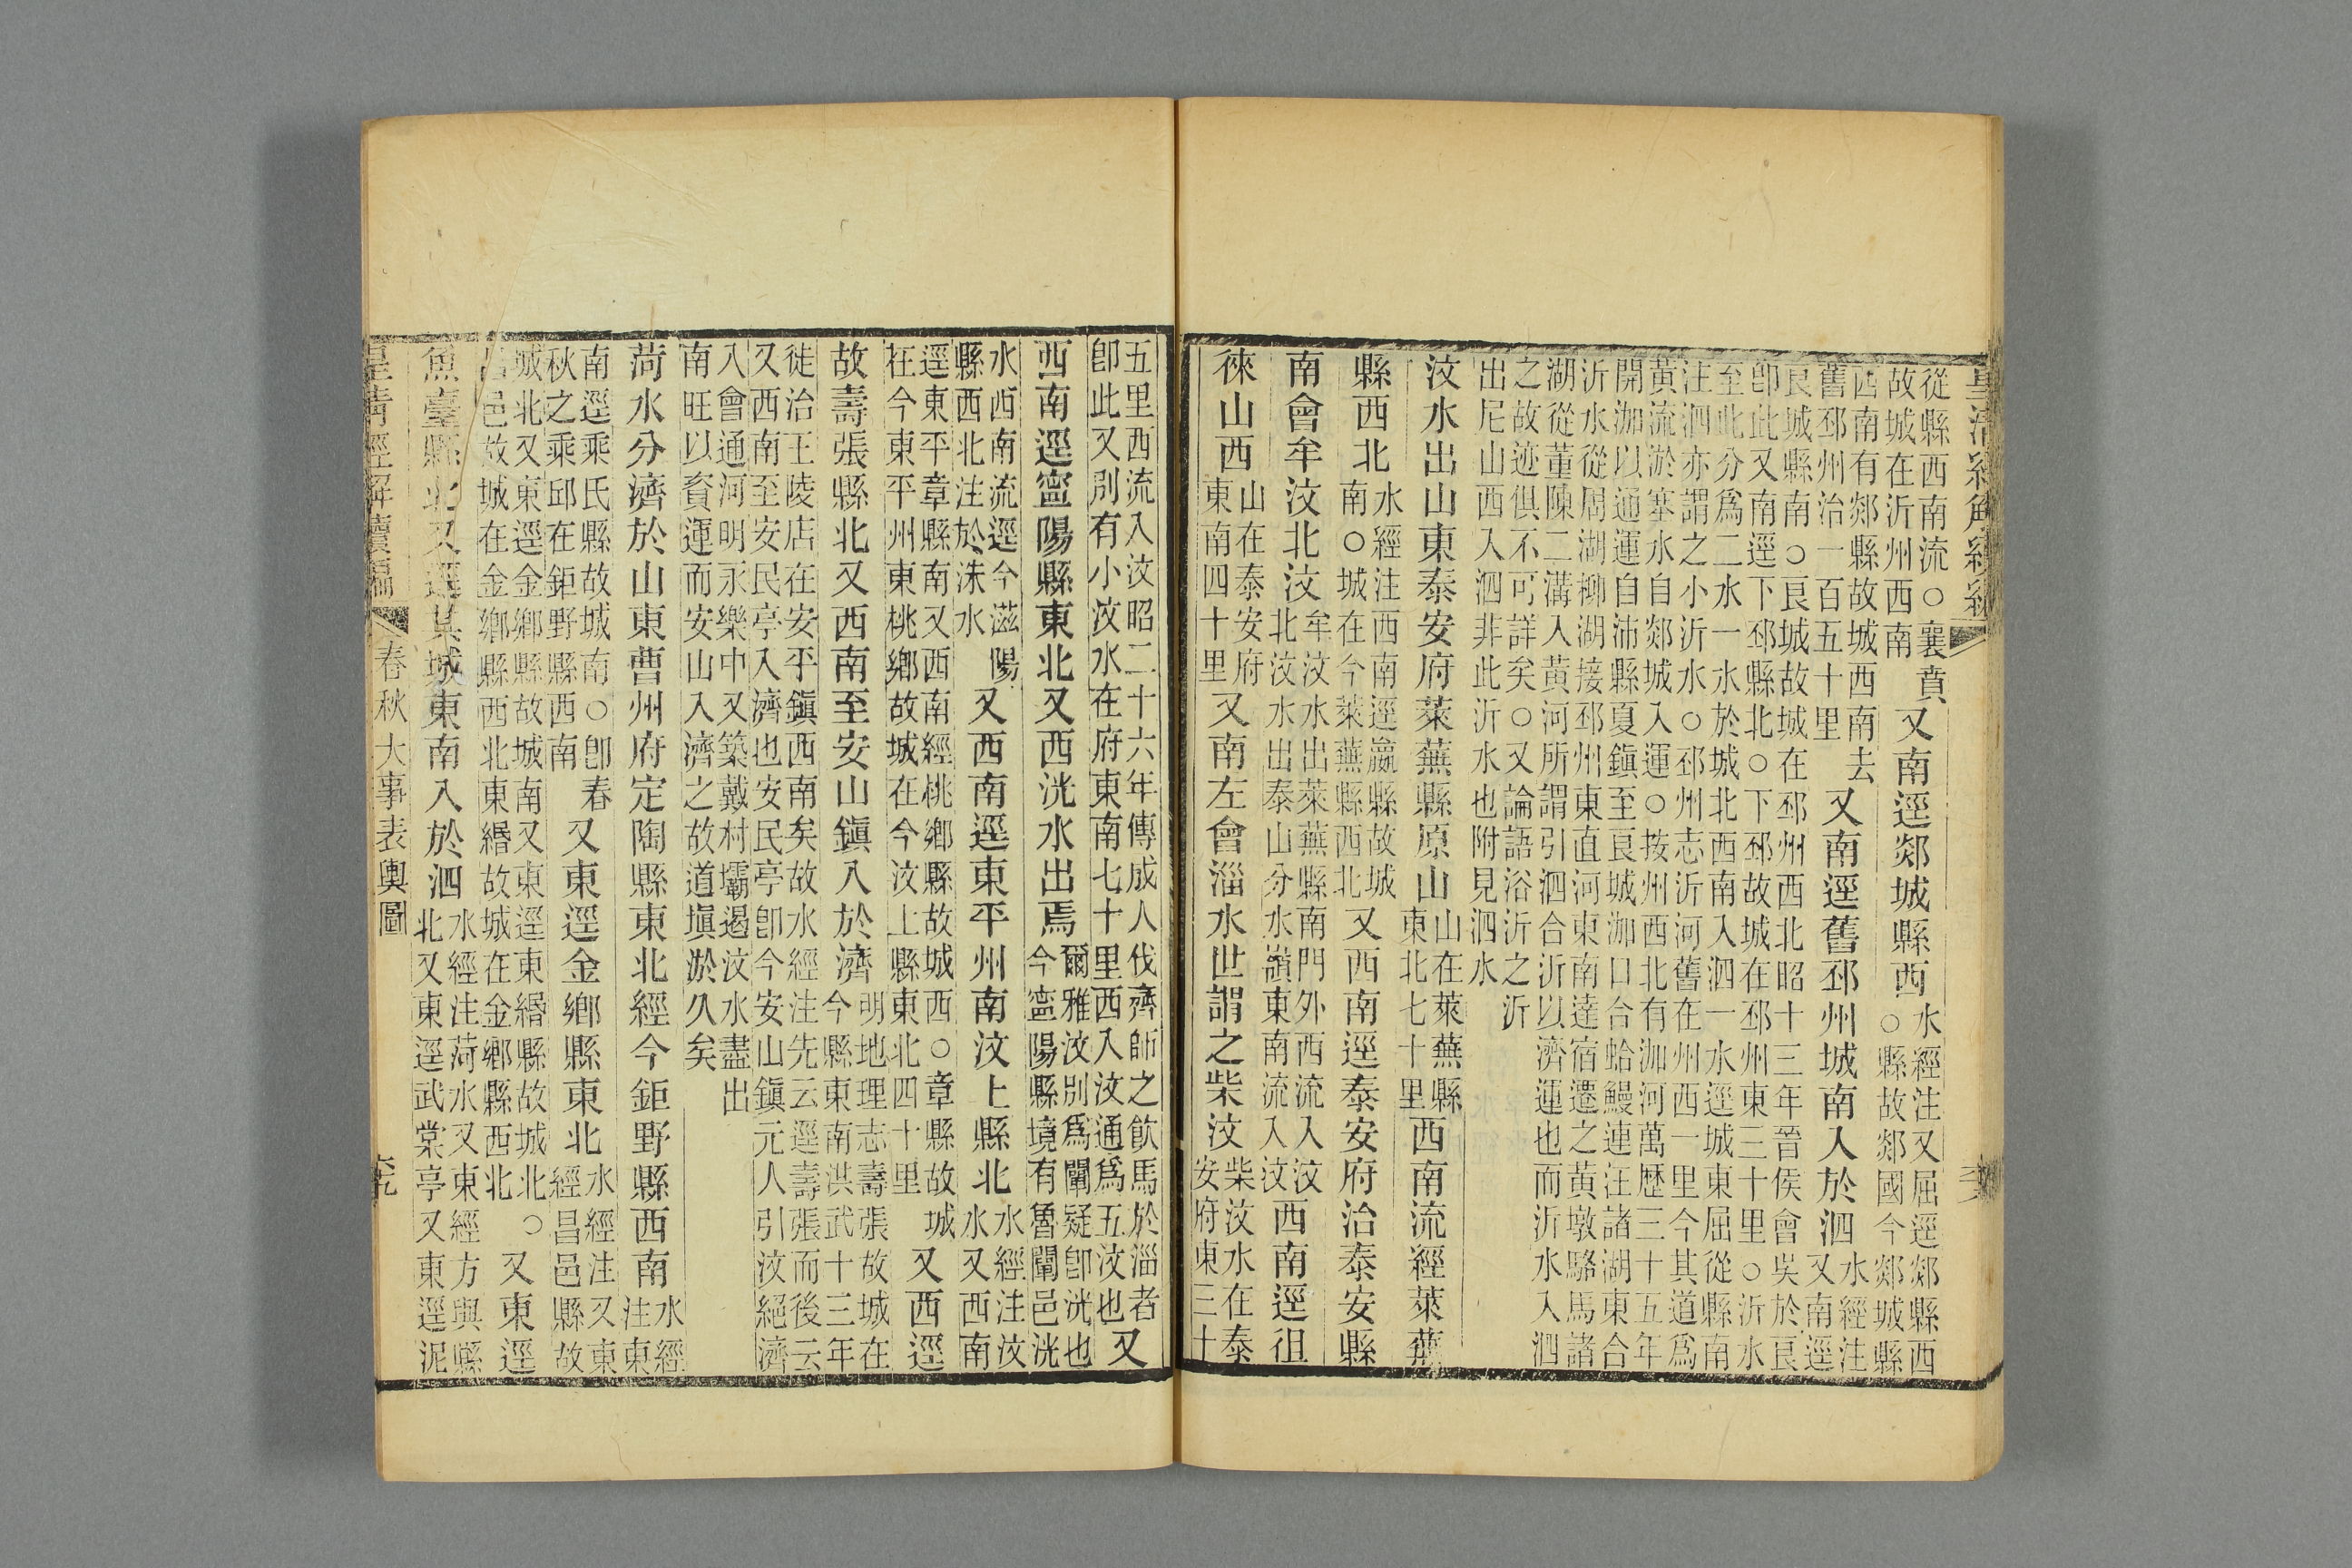 皇清經解續編
從縣西南流○襄賁
故城在沂州西南
又南逕郯城縣西
水經注又屈逕郯縣西
○縣故郯國今郯城縣
西南有郯縣故城西南去
舊邳州治一百五十里
又南逕舊邳州城南入於泗
水經注
又南逕
良城縣南○良城故城在邳州西北昭十三年晉侯會吳於良
卽此又南逕下邳縣北○下邳故城在邳州東三十里○沂水
至此分爲二水一水於城北西南入泗一水逕城東屈從縣南
注泗亦謂之小沂水○邳州志沂河舊在州西一里今其道爲
黃流淤塞水自郯城入運○按州西北有泇河萬歷三十五年
開泇以通運自沛縣夏鎮至良城泇口合蛤鰻連汪諸湖東合
沂水從周湖柳湖接邳州東直河東南達宿遷之黃墩駱馬諸
湖從董陳二溝入黃河所謂引泗合沂以濟運也而沂水入泗
之故迹俱不可詳矣○又論語浴沂之沂
出尼山西入泗非此沂水也附見泗水
汶水出山東泰安府萊蕪縣原山
山在萊蕪縣
東北七十里
西南流經萊蕪
縣西北
水經注西南逕嬴縣故城
南○城在今萊蕪縣西北
又西南逕泰安府治泰安縣
南會牟汶北汶
牟汶水出萊蕪縣南門外西流入汶
北汶水出泰山分水嶺東南流入汶
西南逕徂
徠山西
山在泰安府
東南四十里
又南左會淄水世謂之柴汶
柴汶水在泰
安府東三十
五里西流入汶昭二十六年傳成人伐齊師之飲馬於淄者
卽此又別有小汶水在府東南七十里西入汶通爲五汶也
又
西南逕寧陽縣東北又西洸水出焉
爾雅汶別爲闡疑卽洸也
今寧陽縣境有魯闡邑洸
水西南流逕今滋陽
縣西北注於洙水
又西南逕東平州南汶上縣北
水經注汶
水又西南
逕東平章縣南又西南經桃鄉縣故城西○章縣故城
在今東平州東桃鄉故城在今汶上縣東北四十里
又西逕
故壽張縣北又西南至安山鎮入於濟
明地理志壽張故城在
今縣東南洪武十三年
徙治王陵店在安平鎮西南矣故水經注先云逕壽張而後云
又西南至安民亭入濟也安民亭卽今安山鎮元人引汶絕濟
入會通河明永樂中又築戴村壩遏汶水盡出
南旺以資運而安山入濟之故道塡淤久矣
菏水分濟於山東曹州府定陶縣東北經今鉅野縣西南
水經
注東
南逕乘氏縣故城南○卽春
秋之乘邱在鉅野縣西南
又東逕金鄉縣東北
水經注又東
經昌邑縣故
城北又東逕金鄉縣故城南又東逕東緡縣故城北○
昌邑故城在金鄉縣西北東緡故城在金鄉縣西北
又東逕
魚臺縣北又逕某城東南入於泗
水經注菏水又東經方與縣
北又東逕武棠亭又東逕泥
皇清經解續編
春秋大事表輿圖